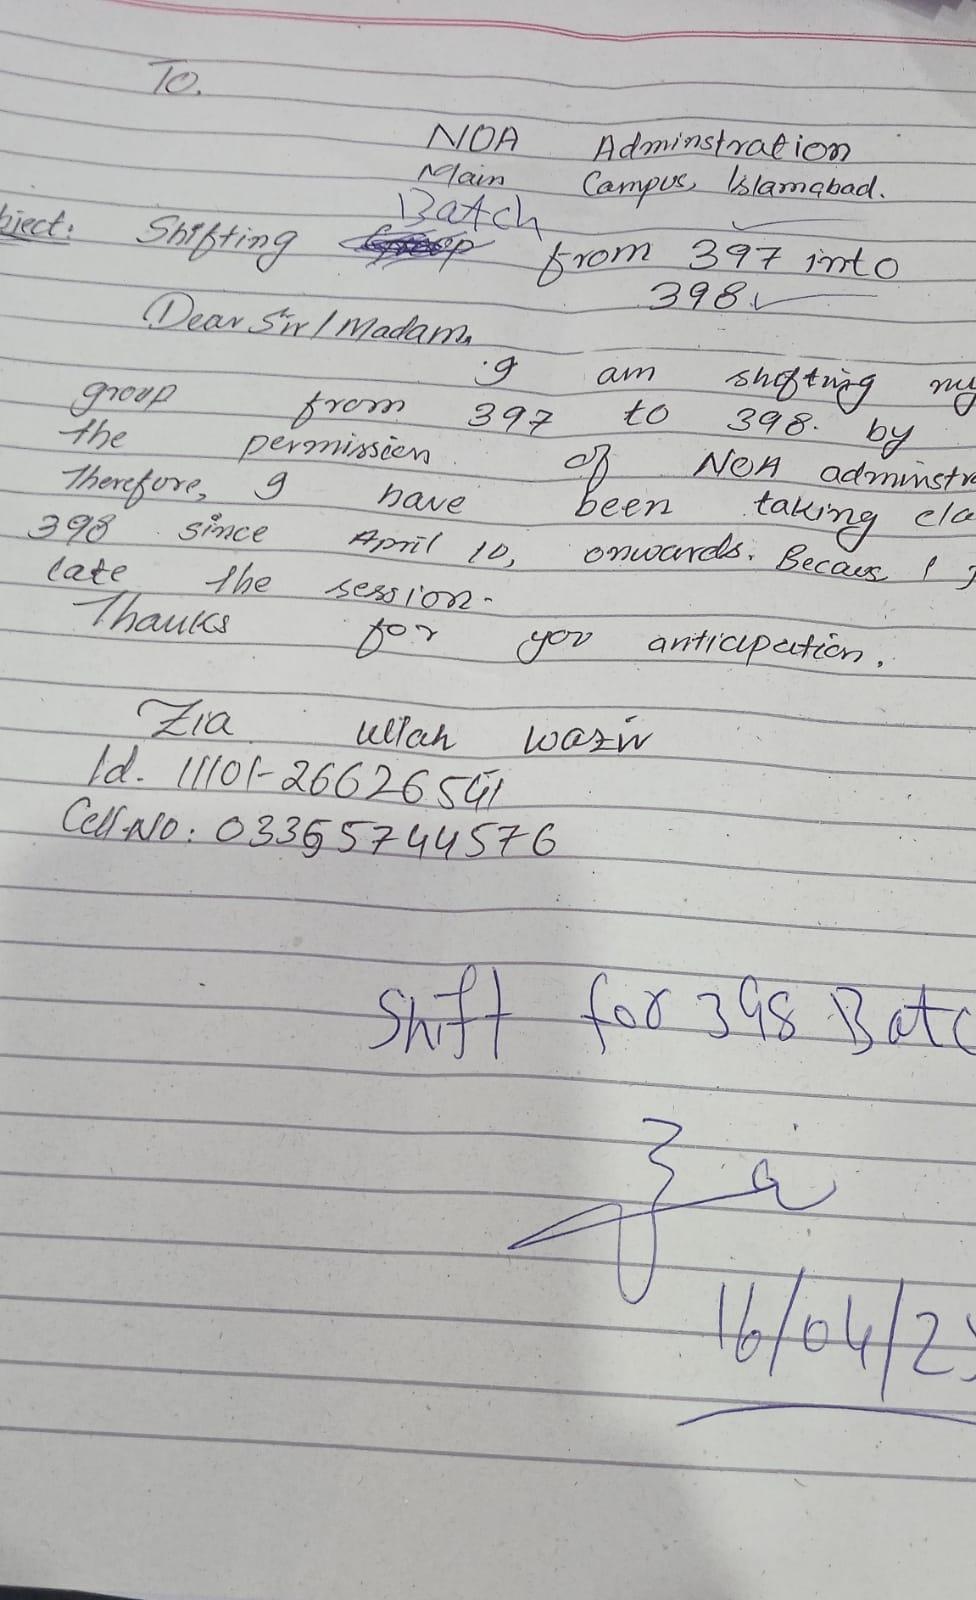 To.
NOA Adminstration
Main Campus, Islamabad.
bject: Shifting Batch from 397 into
398.
Dear Sir / Madam,
I am shifting my
group from 397 to 398. by
the permission of NOA adminstra
Therefore, I have been taking cla
398 since April 10, onwards. Becaus I
late the session.
Thanks for you anticipation.
Zia Ullah Wazir
Id. 11101-2662654
Cell No: 03365744576
Shift for 398 Batc
Zia
16/04/25